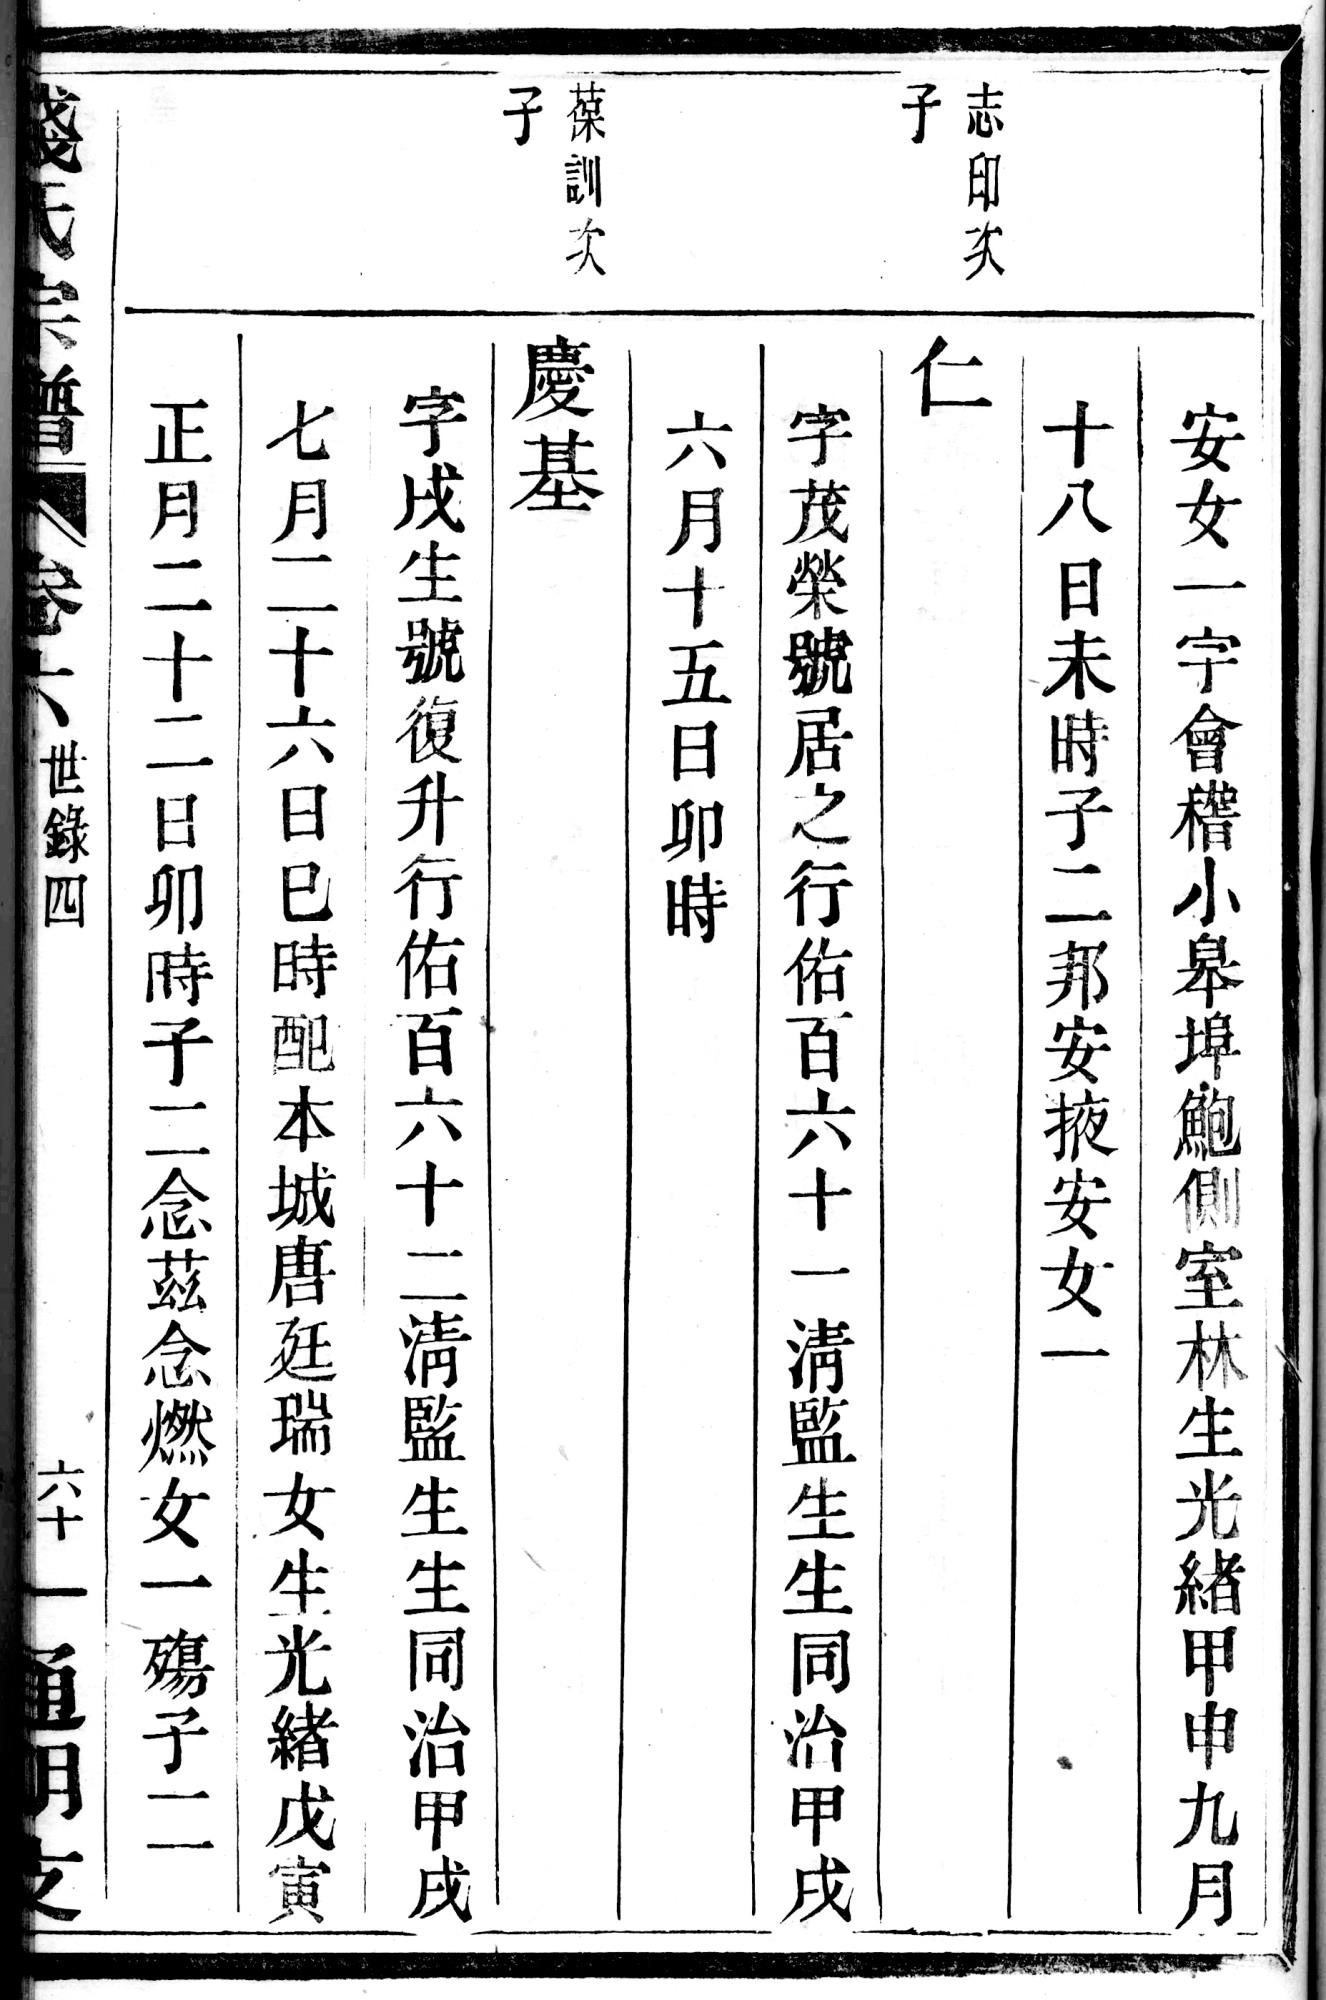 安女一字會稽小皋埠鮑側室林生光緒甲申九月
十八日未時子二邦安掖安女一
志印次
子
仁
字茂榮號居之行佑百六十一清監生生同治甲戌
六月十五日卯時
葆訓次
子
慶基
字戌生號復升行佑百六十二清監生生同治甲戌
七月二十六日巳時配本城唐廷瑞女生光緒戊寅
正月二十二日卯時子二念茲念燃女一殤子二
錢氏宗譜 卷六 世錄四 六十一 通明支